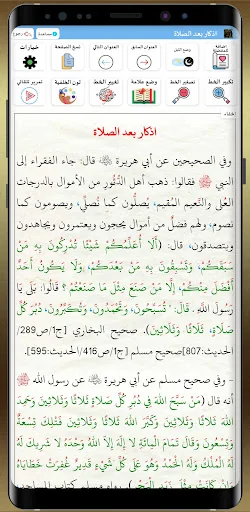 اذكار بعد الصلاة
مساعدة
رجوع
اضافة للمفضلة
وضع الليل
العنوان السابق
العنوان التالي
نسخ الصفحة
خيارات
تكبير الخط
تصغير الخط
وضع علامة
نوع الخط
لون الخلفية
تمرير تلقائي
اخفاء
اذكار بعد الصلاة
وفي الصحيحين عن أبي هريرة ﷺ قال: جاء الفقراء إلى
النبي ﷺ فقالوا: ذهب أهل الدُّثُور من الأموال بالدرجات
العُلَى والنَّعيم المُقيم، يُصلُّون كما نُصلِّي، ويصومون كما
نصوم، ولهم فضلٌ من أموال يحجون ويعتمرون ويجاهدون
ويتصدقون. قال: (أَلَا أُعَلِّمُكُمْ شَيْئًا تُدْرِكُونَ بِهِ مَنْ
سَبَقَكُمْ، وَتَسْبِقُونَ بِهِ مَنْ بَعْدَكُمْ، وَلَا يَكُونُ أَحَدٌ
أَفْضَلَ مِنْكُمْ، إِلَّا مَنْ صَنَعَ مِثْلَ مَا صَنَعْتُمْ ؟ قَالُوا: بَلَى يَا
رَسُولَ اللَّهِ. قال : تُسَبِّحُونَ، وَتَحْمَدُونَ، وَتُكَبِّرُونَ، دُبُرَ كُلِّ
صَلَاةٍ، ثَلَاثًا وَثَلَاثِينَ). صحيح البخاري [ج1/ص289/
الحديث:807]صحيح مسلم [ج1/ص416/الحديث:595].
- وفي صحيح مسلم عن أبي هريرة ﷺ عن رسول الله ﷺ
أنه قال: (مَنْ سَبَّحَ اللَّهَ فِي دُبُرِ كُلِّ صَلَاةٍ ثَلَاثًا وَثَلَاثِينَ، وَحَمِدَ
اللَّهَ ثَلَاثًا وَثَلَاثِينَ وَكَبَّرَ اللَّهَ ثَلَاثًا وَثَلَاثِينَ فَتْلِكَ تِسْعَةٌ
وَتِسْعُونَ وَقَالَ تَمَامَ الْمِائَةِ لَا إِلَهَ إِلَّا اللَّهُ وَحْدَهُ لَا شَرِيكَ لَهُ
لَهُ الْمُلْكُ وَلَهُ الْحَمْدُ وَهُوَ عَلَى كُلِّ شَيْءٍ قَدِيرٌ غُفِرَتْ خَطَايَاهُ